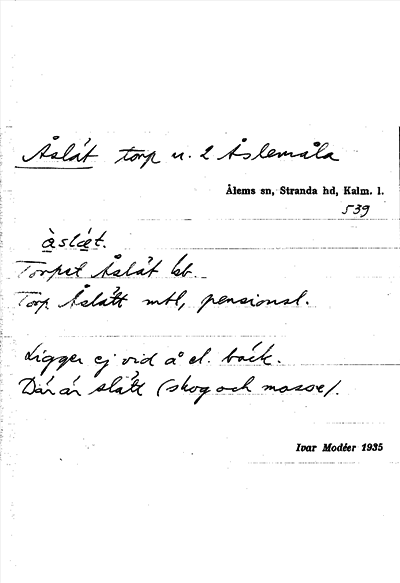 Åslät torp u. 2 Åslemåla
Ålems sn, Stranda hd, Kalm. l.
539
àslæt.
Torpet Åslät kb.
Torp Åslätt mtl, pensionsl.
Ligger ej vid å el. bäck.
Där är slätt (skog och mosse).
Ivar Modéer 1935